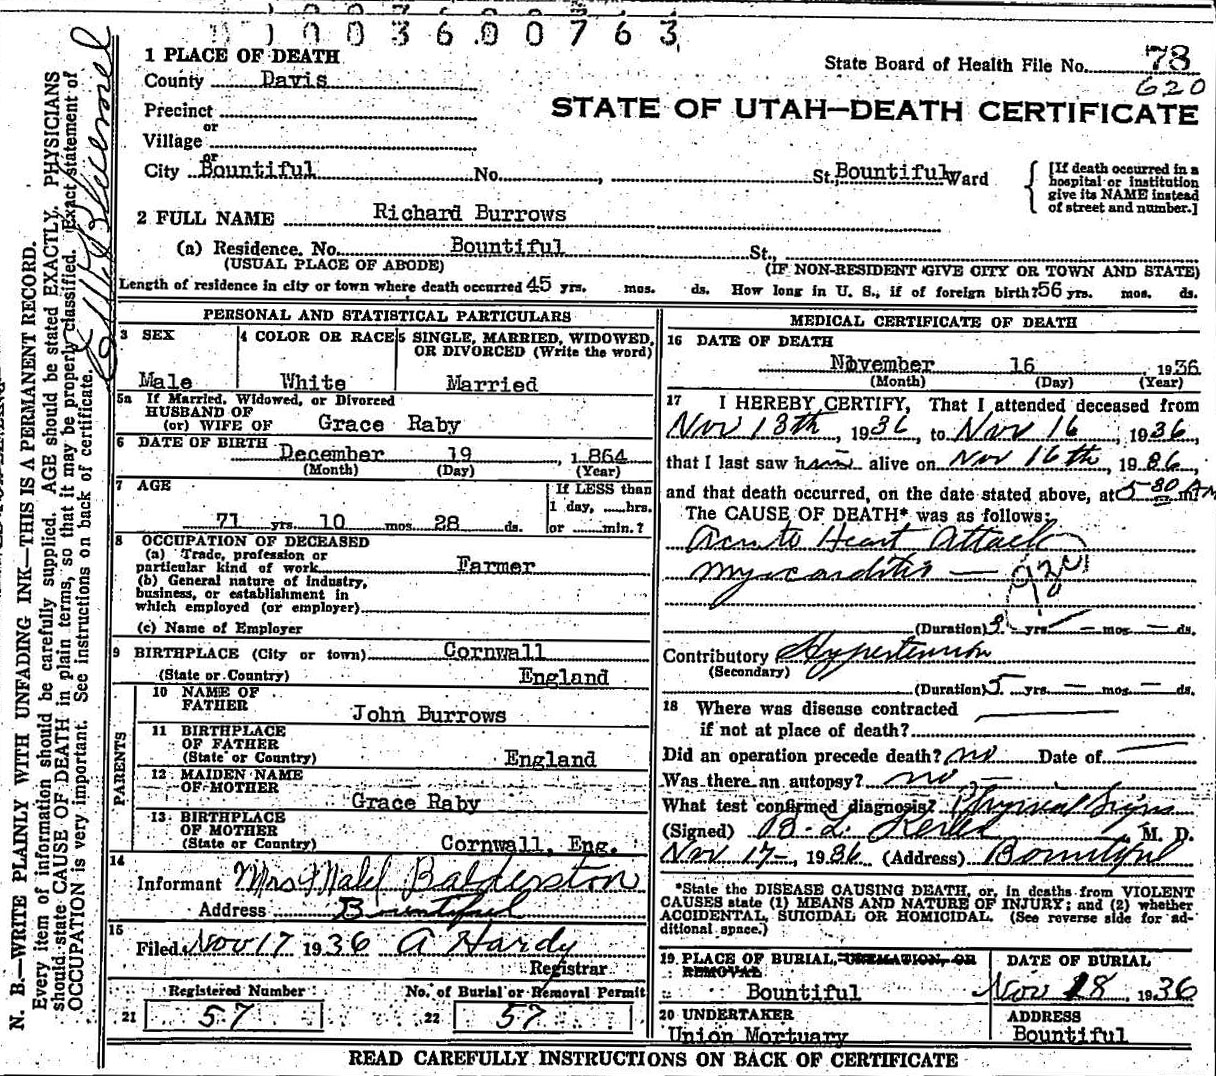 1 PLACE OF DEATH
State Board of Health File No. 73
County Davis
620
STATE OF UTAH—DEATH CERTIFICATE
Precinct
or
Village
or
City Bountiful No. , St., Bountiful Ward
[If death occurred in a hospital or institution give its NAME instead of street and number.]
2 FULL NAME Richard Burrows
(a) Residence. No. Bountiful St.,
(USUAL PLACE OF ABODE) (IF NON-RESIDENT GIVE CITY OR TOWN AND STATE)
Length of residence in city or town where death occurred 45 yrs. mos. ds. How long in U. S., if of foreign birth? 56 yrs. mos. ds.
PERSONAL AND STATISTICAL PARTICULARS
3 SEX 4 COLOR OR RACE 5 SINGLE, MARRIED, WIDOWED,
OR DIVORCED (Write the word)
Male White Married
5a If Married, Widowed, or Divorced
HUSBAND OF
(or) WIFE OF Grace Raby
6 DATE OF BIRTH
December 19, 1864
(Month) (Day) (Year)
7 AGE If LESS than
1 day, ....hrs.
71 yrs. 10 mos. 28 ds. or ....min.?
8 OCCUPATION OF DECEASED
(a) Trade, profession or
particular kind of work Farmer
(b) General nature of industry,
business, or establishment in
which employed (or employer)
(c) Name of Employer
9 BIRTHPLACE (City or town) Cornwall
(State or Country) England
PARENTS
10 NAME OF
FATHER
John Burrows
11 BIRTHPLACE
OF FATHER
(State or Country) England
12 MAIDEN NAME
OF MOTHER
Grace Raby
13 BIRTHPLACE
OF MOTHER
(State or Country) Cornwall, Eng.
14
Informant Mrs Balderston
Address Bountiful
15
Filed Nov 17 1936 A Hardy
Registrar
Registered Number No. of Burial or Removal Permit
21 57 22 57
MEDICAL CERTIFICATE OF DEATH
16 DATE OF DEATH
November 16 , 1936
(Month) (Day) (Year)
17 I HEREBY CERTIFY, That I attended deceased from
Nov 13th, 1936, to Nov 16, 1936,
that I last saw him alive on Nov 16th, 1936,
and that death occurred, on the date stated above, at 5 30 AM m.
The CAUSE OF DEATH* was as follows:
Acute Heart Attack
Myocarditis —
(Duration) 3 yrs. — mos. — ds.
Contributory Hypertension
(Secondary)
(Duration) 5 yrs. — mos. — ds.
18 Where was disease contracted
if not at place of death?
Did an operation precede death? no Date of
Was there an autopsy? no —
What test confirmed diagnosis? Physical Signs
(Signed) B. L. , M. D.
Nov 17 —, 1936 (Address) Bountiful
*State the DISEASE CAUSING DEATH, or, in deaths from VIOLENT
CAUSES state (1) MEANS AND NATURE OF INJURY; and (2) whether
ACCIDENTAL, SUICIDAL OR HOMICIDAL. (See reverse side for ad-
ditional space.)
19 PLACE OF BURIAL, CREMATION, OR
REMOVAL
Bountiful
DATE OF BURIAL
Nov 18, 1936
20 UNDERTAKER
Union Mortuary
ADDRESS
Bountiful
READ CAREFULLY INSTRUCTIONS ON BACK OF CERTIFICATE
N. B.—WRITE PLAINLY WITH UNFADING INK—THIS IS A PERMANENT RECORD.
Every item of information should be carefully supplied. AGE should be stated EXACTLY. PHYSICIANS
should state CAUSE OF DEATH in plain terms, so that it may be properly classified. Exact statement of
OCCUPATION is very important. See instructions on back of certificate.